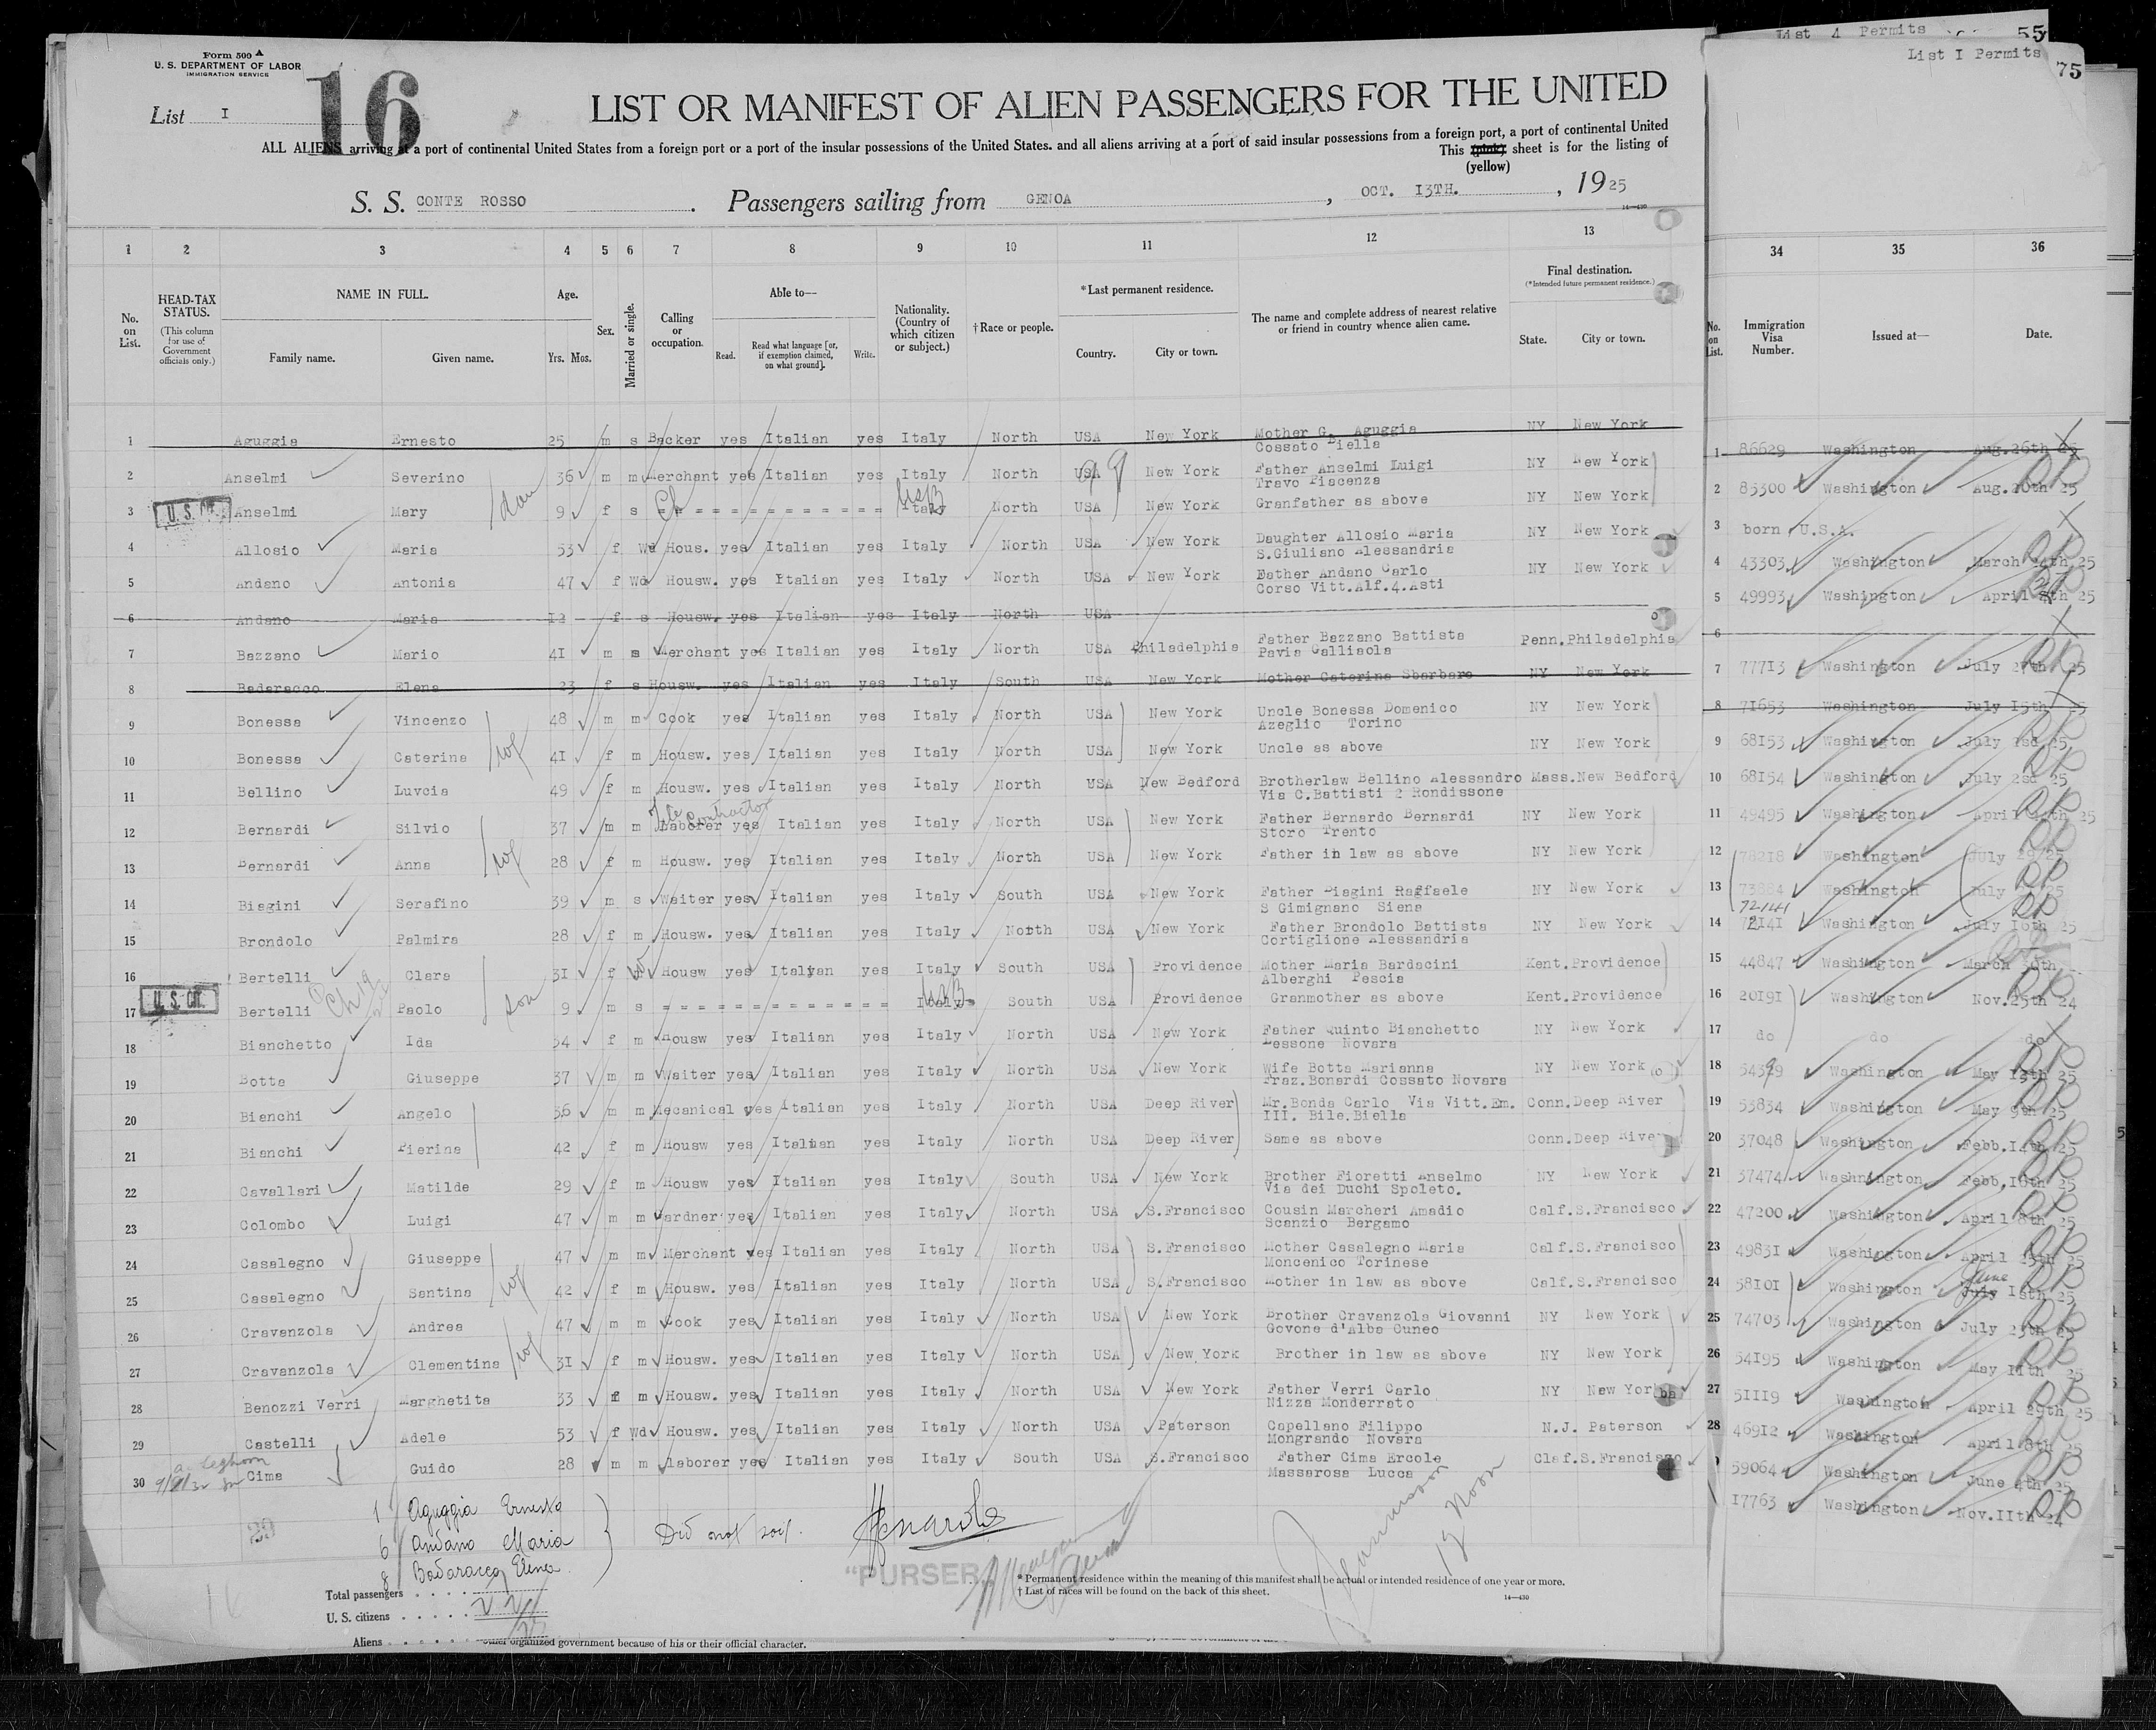 List 4 Permits 55
List I Permits
75
Form 500 A
U. S. DEPARTMENT OF LABOR
IMMIGRATION SERVICE
List I
16
LIST OR MANIFEST OF ALIEN PASSENGERS FOR THE UNITED
ALL ALIENS arriving at a port of continental United States from a foreign port or a port of the insular possessions of the United States, and all aliens arriving at a port of said insular possessions from a foreign port, a port of continental United
This (pink) sheet is for the listing of
(yellow)
S. S. CONTE ROSSO . Passengers sailing from GENOA , OCT. I3TH. , 1925
14—430
1 2 3 4 5 6 7 8 9 10 11 12 13 34 35 36
No. on List.
HEAD-TAX STATUS.
(This column for use of Government officials only.)
NAME IN FULL.
Family name. Given name.
Age.
Yrs. Mos.
Sex.
Married or single.
Calling or occupation.
Able to—
Read. Read what language [or, if exemption claimed, on what ground]. Write.
Nationality. (Country of which citizen or subject.)
†Race or people.
*Last permanent residence.
Country. City or town.
The name and complete address of nearest relative or friend in country whence alien came.
Final destination.
(*Intended future permanent residence.)
State. City or town.
No. on List. Immigration Visa Number. Issued at— Date.
1 Aguggia Ernesto 25 m s Backer yes Italian yes Italy North USA New York Mother G. Aguggia NY New York
Cossato Biella
2 Anselmi Severino 36 m m Merchant yes Italian yes Italy North USA New York Father Anselmi Luigi NY New York
Travo Piacenza
3 U. S. CIT. Anselmi Mary dau 9 f s Ch = = = = = = = = = = = Italy USB North USA New York Granfather as above NY New York
4 Allosio Maria 53 f Wd Hous. yes Italian yes Italy North USA New York Daughter Allosio Maria NY New York
S.Giuliano Alessandria
5 Andano Antonia 47 f Wd Housw. yes Italian yes Italy North USA New York Father Andano Carlo NY New York
Corso Vitt.Alf.4.Asti
6 Andano Maria I2 f s Housw. yes Italian yes Italy North USA
7 Bazzano Mario 4I m s Merchant yes Italian yes Italy North USA Philadelphia Father Bazzano Battista Penn.Philadelphia
Pavia Galliaola
8 Badaracco Elena 23 f s Housw. yes Italian yes Italy South USA New York Mother Caterina Sbarbaro NY New York
9 Bonessa Vincenzo 48 m m Cook yes Italian yes Italy North USA New York Uncle Bonessa Domenico NY New York
Azeglio Torino
10 Bonessa Caterina wf 4I f m Housw. yes Italian yes Italy North USA New York Uncle as above NY New York
11 Bellino Luvcia 49 f m Housw. yes Italian yes Italy North USA New Bedford Brotherlaw Bellino Alessandro Mass.New Bedford
Via C.Battisti 2 Rondissone
Tile Contractor
12 Bernardi Silvio 37 m m Laborer yes Italian yes Italy North USA New York Father Bernardo Bernardi NY New York
Storo Trento
13 Bernardi Anna wf 28 f m Housw. yes Italian yes Italy North USA New York Father in law as above NY New York
14 Biagini Serafino 39 m s Waiter yes Italian yes Italy South USA New York Father Biagini Raffaele NY New York
S Gimignano Siena
15 Brondolo Palmira 28 f m Housw. yes Italian yes Italy North USA New York Father Brondolo Battista NY New York
Cortiglione Alessandria
16 Bertelli Clara 3I f W Housw yes Italian yes Italy South USA Providence Mother Maria Bardacini Kent.Providence
Alberghi Pescia
17 U. S. CIT. Bertelli Paolo son 9 m s = = = = = = = = = = = = Italy USB South USA Providence Granmother as above Kent.Providence
18 Bianchetto Ida 34 f m Housw yes Italian yes Italy North USA New York Father Quinto Bianchetto NY New York
Lessone Novara
19 Botta Giuseppe 37 m m Waiter yes Italian yes Italy North USA New York Wife Botta Marianna NY New York
Fraz.Bonardi Cossato Novara
20 Bianchi Angelo 56 m m Mecanical yes Italian yes Italy North USA Deep River Mr.Bonda Carlo Via Vitt.Em. Conn.Deep River
III. Bile.Biella
21 Bianchi Pierina 42 f m Housw yes Italian yes Italy North USA Deep River Same as above Conn.Deep River
22 Cavallari Matilde 29 f m Housw yes Italian yes Italy South USA New York Brother Fioretti Anselmo NY New York
Via dei Duchi Spoleto.
23 Colombo Luigi 47 m m Gardner yes Italian yes Italy North USA S.Francisco Cousin Marcheri Amadio Calf.S.Francisco
Scanzio Bergamo
24 Casalegno Giuseppe 47 m m Merchant yes Italian yes Italy North USA S.Francisco Mother Casalegno Maria Calf.S.Francisco
Moncenico Torinese
25 Casalegno Santina wf 42 f m Housw. yes Italian yes Italy North USA S.Francisco Mother in law as above Calf.S.Francisco
26 Cravanzola Andrea 47 m m Cook yes Italian yes Italy North USA New York Brother Cravanzola Giovanni NY New York
Govone d'Alba Cuneo
27 Cravanzola Clementina wf 3I f m Housw. yes Italian yes Italy North USA New York Brother in law as above NY New York
28 Benozzi Verri Marghetita 33 f m Housw. yes Italian yes Italy North USA New York Father Verri Carlo NY New York
Nizza Monderrato
29 Castelli Adele 53 f Wd Housw. yes Italian yes Italy North USA Paterson Capellano Filippo N.J. Paterson
Mongrando Novara
30 Cima Guido 28 m m laborer yes Italian yes Italy South USA S.Francisco Father Cima Ercole Claf.S.Francisco
Massarosa Lucca
1 86629 Washington Aug.26th 25
2 85300 Washington Aug.20th 25
3 born U.S.A.
4 43303 Washington March 24th 25
5 49993 Washington April 25
6
7 777I3 Washington July 27th 25
8 7I653 Washington July I5th 25
9 68I53 Washington July 2sd 25
10 68I54 Washington July 2sd 25
11 49495 Washington April 25
12 782I8 Washington July 29 25
13 73884 Washington July 25
72141
14 72I4I Washington July I6th 25
15 44847 Washington March 30th
16 20I9I Washington Nov.25th 24
17 do do do
18 54399 Washington May I3th 25
19 53834 Washington May 9th 25
20 37048 Washington Febb.I4th 25
21 37474 Washington Febb.I6th 25
22 47200 Washington April 8th 25
23 4983I Washington April I5th 25
June
24 58I0I Washington July I5th 25
25 74703 Washington July 23th 25
26 54I95 Washington May I4th 25
27 5III9 Washington April 29th 25
28 469I2 Washington April 8th 25
59064 Washington June 4th 25
I7763 Washington Nov.IIth 24
1 Aguggia Ernesto
6 Andano Maria
8 Badaracco Elena
Did not sail.
29
12 Noon
"PURSER"
Total passengers
U. S. citizens
Aliens
* Permanent residence within the meaning of this manifest shall be actual or intended residence of one year or more.
† List of races will be found on the back of this sheet.
14—430
other organized government because of his or their official character.